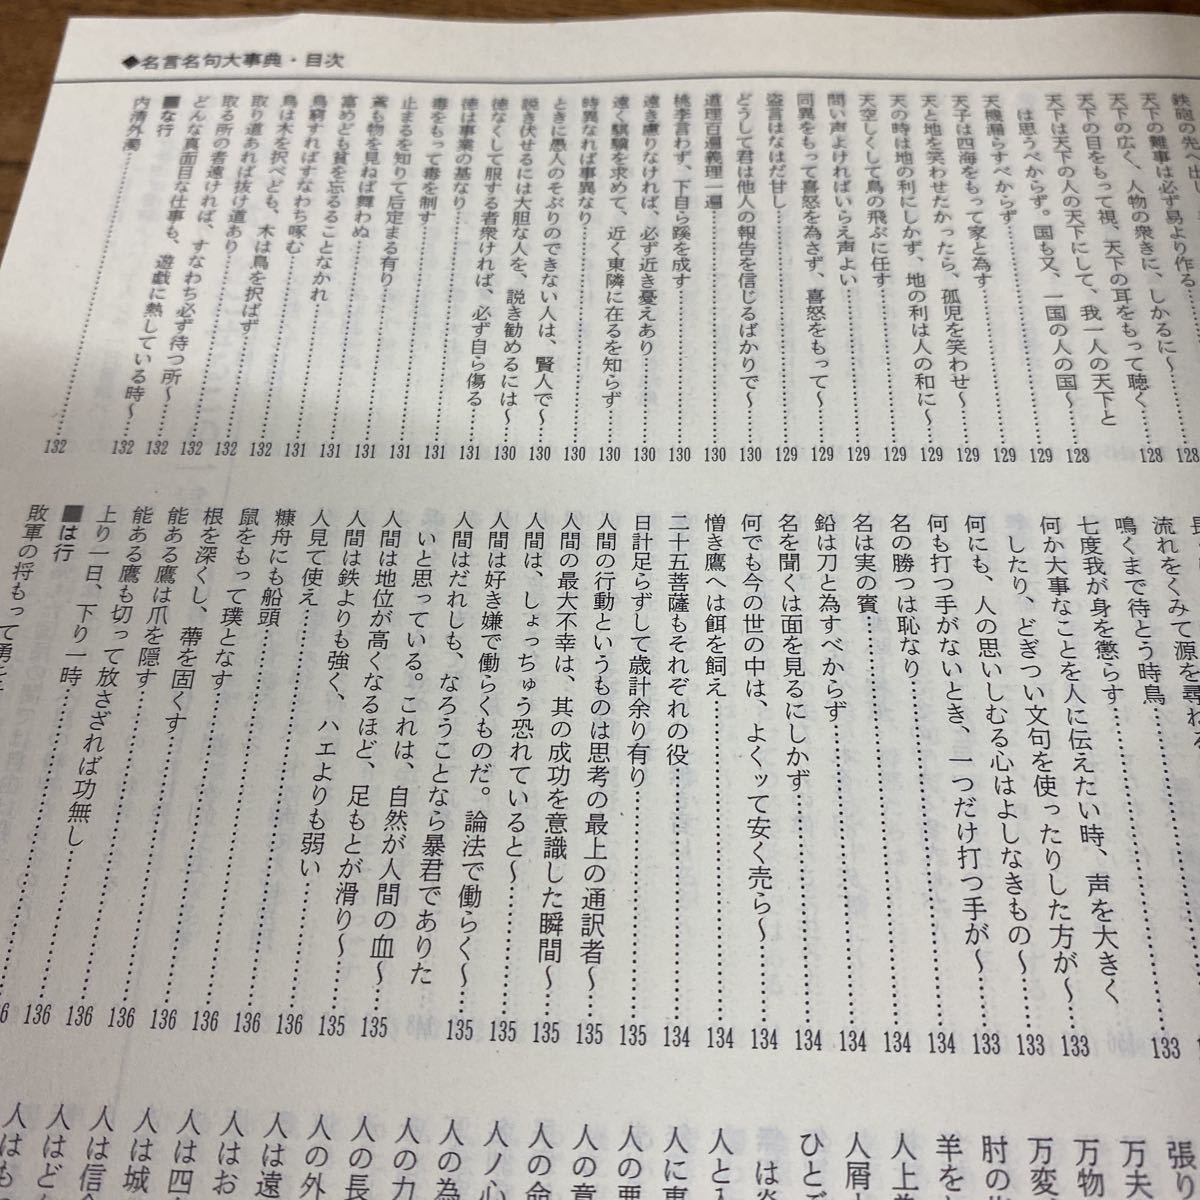 ◆名言名句大事典・目次
鉄砲の先へ出
128
天下の難事は必ず易より作る………128
天下の広く、人物の衆きに、しかるに～
天下の目をもって視、天下の耳をもって聴く
天下は天下の人の天下にして、我一人の天下と
は思うべからず。国も又、一国の人の国～……128
天機漏らすべからず………129
天子は四海をもって家と為す………129
天と地を笑わせたかったら、孤児を笑わせ～……129
天の時は地の利にしかず、地の利は人の和に～……129
天空しくして鳥の飛ぶに任す………129
問い声よければいらえ声よい………129
同異をもって喜怒を為さず、喜怒をもって～……129
盗言はなはだ甘し………129
どうして君は他人の報告を信じるばかりで～……130
道理百遍義理一遍………130
桃李言わず、下自ら蹊を成す………130
遠き慮りなければ、必ず近き憂えあり………130
遠く騏驥を求めて、近く東隣に在るを知らず……130
時異なれば事異なり………130
ときに愚人のそぶりのできない人は、賢人で～……130
説き伏せるには大胆な人を、説き勧めるには～……130
徳なくして服する者衆ければ、必ず自ら傷る……130
徳は事業の基なり………131
毒をもって毒を制す………131
止まるを知りて后定まる有り………131
鳶も物を見ねば舞わぬ………131
富めども貧を忘るることなかれ………131
鳥窮すればすなわち啄む………131
鳥は木を択べども、木は鳥を択ばず………132
取り道あれば抜け道あり………132
取る所の者遠ければ、すなわち必ず待つ所～……132
どんな真面目な仕事も、遊戯に熱している時～……132
■な行
内清外濁………132
流れをくみて源を尋ね
鳴くまで待とう時鳥………133
七度我が身を懲らす
何か大事なことを人に伝えたい時、声を大きく
したり、どぎつい文句を使ったりした方が～……133
何にも、人の思いしむる心はよしなきもの～……133
何も打つ手がないとき、一つだけ打つ手が～……133
名の勝つは恥なり………134
名は実の賓………134
鉛は刀と為すべからず………134
名を聞くは面を見るにしかず………134
何でも今の世の中は、よくッて安く売ら～……134
憎き鷹へは餌を飼え………134
二十五菩薩もそれぞれの役………134
日計足らずして歳計余り有り………135
人間の行動というものは思考の最上の通訳者～……135
人間の最大不幸は、其の成功を意識した瞬間～……135
人間は、しょっちゅう恐れていると～………135
人間は好き嫌で働らくものだ。論法で働らく～……135
人間はだれしも、なろうことなら暴君でありた
いと思っている。これは、自然が人間の血～……135
人間は地位が高くなるほど、足もとが滑り～……135
人間は鉄よりも強く、ハエよりも弱い………135
人見て使え………136
糠舟にも船頭………136
鼠をもって璞となす………136
根を深くし、蔕を固くす………136
能ある鷹は爪を隠す………136
能ある鷹も切って放さざれば功無し………136
上り一日、下り一時………136
■は行
敗軍の将もって勇を
張り
万夫
万物
万変
肘の
羊を
人上
人屑
ひとご
は炎
人と
人に
人の悪
人の意
人の命
人ノ心
人の為
人の力
人の長
人の外
人は遠
人はお
人は四
人は城
人は信
人はど
人はも